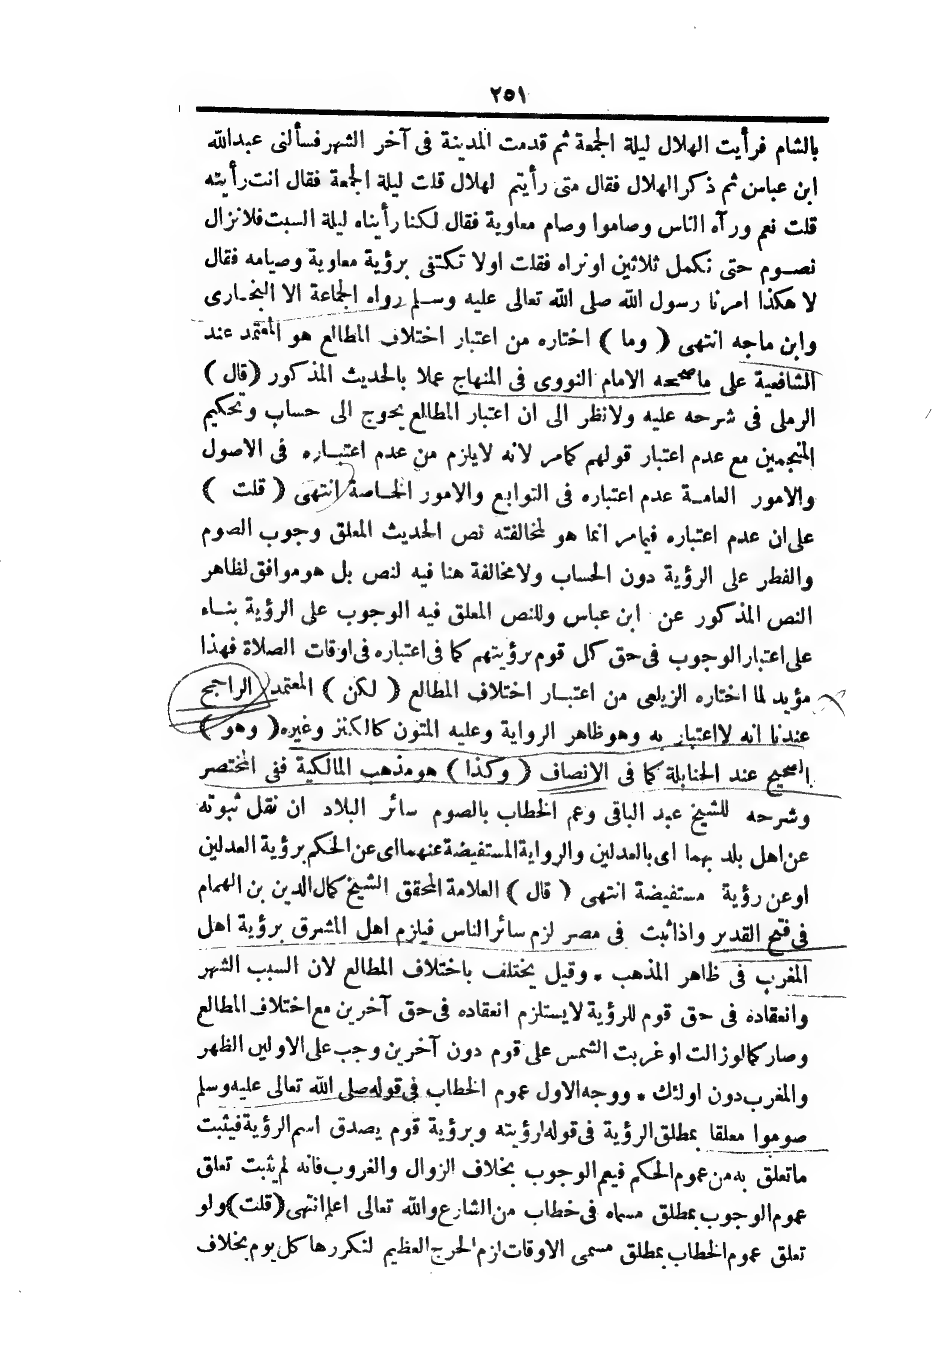 ٢٥١
بالشام فرأيت الهلال ليلة الجمعة ثم قدمت المدينة فى آخر الشهر فسألنى عبدالله
ابن عباس ثم ذكر الهلال فقال متى رأيتم لهلال قلت ليلة الجمعة فقال انت رأيته
قلت نعم ورآه الناس وصاموا وصام معاوية فقال لكنا رأيناه ليلة السبت فلا نزال
نصوم حتى نكمل ثلاثين او نراه فقلت اولا تكتفى برؤية معاوية وصيامه فقال
لا هكذا امرنا رسول الله صلى الله تعالى عليه وسلم رواه الجماعة الا البخارى
وابن ماجه انتهى ( وما ) اختاره من اعتبار اختلاف المطالع هو المعتمد عند
الشافعية على ماصححه الامام النووى فى المنهاج عملا بالحديث المذكور ( قال )
الرملى فى شرحه عليه ولانظر الى ان اعتبار المطالع يحوج الى حساب وتحكيم
المنجمين مع عدم اعتبار قولهم كامر لانه لايلزم من عدم اعتباره فى الاصول
والامور العامة عدم اعتباره فى التوابع والامور الخاصة انتهى ( قلت )
على ان عدم اعتباره فيمامر انما هو لمخالفته نص الحديث المعلق وجوب الصوم
والفطر على الرؤية دون الحساب ولامخالفة هنا فيه لنص بل هو موافق لظاهر
النص المذكور عن ابن عباس وللنص المعلق فيه الوجوب على الرؤية بناء
على اعتبار الوجوب فى حق كل قوم برؤيتهم كما فى اعتباره فى اوقات الصلاة فهذا
مؤيد لما اختاره الزيلعى من اعتبار اختلاف المطالع ( لكن ) المعتمد الراجح
عندنا انه لااعتبار به وهو ظاهر الرواية وعليه المتون كالكنز وغيره ( وهو )
الصحيح عند الحنابلة كما فى الانصاف ( وكذا ) هو مذهب المالكية ففى المختصر
وشرحه للشيخ عبد الباقى وعم الخطاب بالصوم سائر البلاد ان نقل ثبوته
عن اهل بلد بهما اى بالعدلين والرواية المستفيضة عنهما اى عن الحكم برؤية العدلين
او عن رؤية مستفيضة انتهى ( قال ) العلامة المحقق الشيخ كمال الدين بن الهمام
فى فتح القدير واذا ثبت فى مصر لزم سائر الناس فيلزم اهل المشرق برؤية اهل
المغرب فى ظاهر المذهب * وقيل يختلف باختلاف المطالع لان السبب الشهر
وانعقاده فى حق قوم للرؤية لا يستلزم انعقاده فى حق آخرين مع اختلاف المطالع
وصار كما لو زالت او غربت الشمس على قوم دون آخرين وجب على الاولين الظهر
والمغرب دون اولئك * ووجه الاول عموم الخطاب فى قوله صلى الله تعالى عليه وسلم
صوموا معلقا بمطلق الرؤية فى قوله لرؤيته وبرؤية قوم يصدق اسم الرؤية فيثبت
ماتعلق به من عموم الحكم فيعم الوجوب بخلاف الزوال والغروب فانه لم يثبت تعلق
عموم الوجوب بمطلق مسماه فى خطاب من الشارع والله تعالى اعلم انتهى ( قلت ) ولو
تعلق عموم الخطاب بمطلق مسمى الاوقات لزم الحرج العظيم لتكررها كل يوم بخلاف